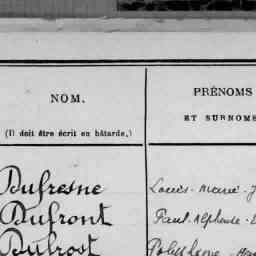 NOM.
PRÉNOMS
(Il doit être écrit en bâtarde.)
ET SURNOMS
Dufresne Louis-Marie-J
Dufront Paul-Alphonse-
Dufrost